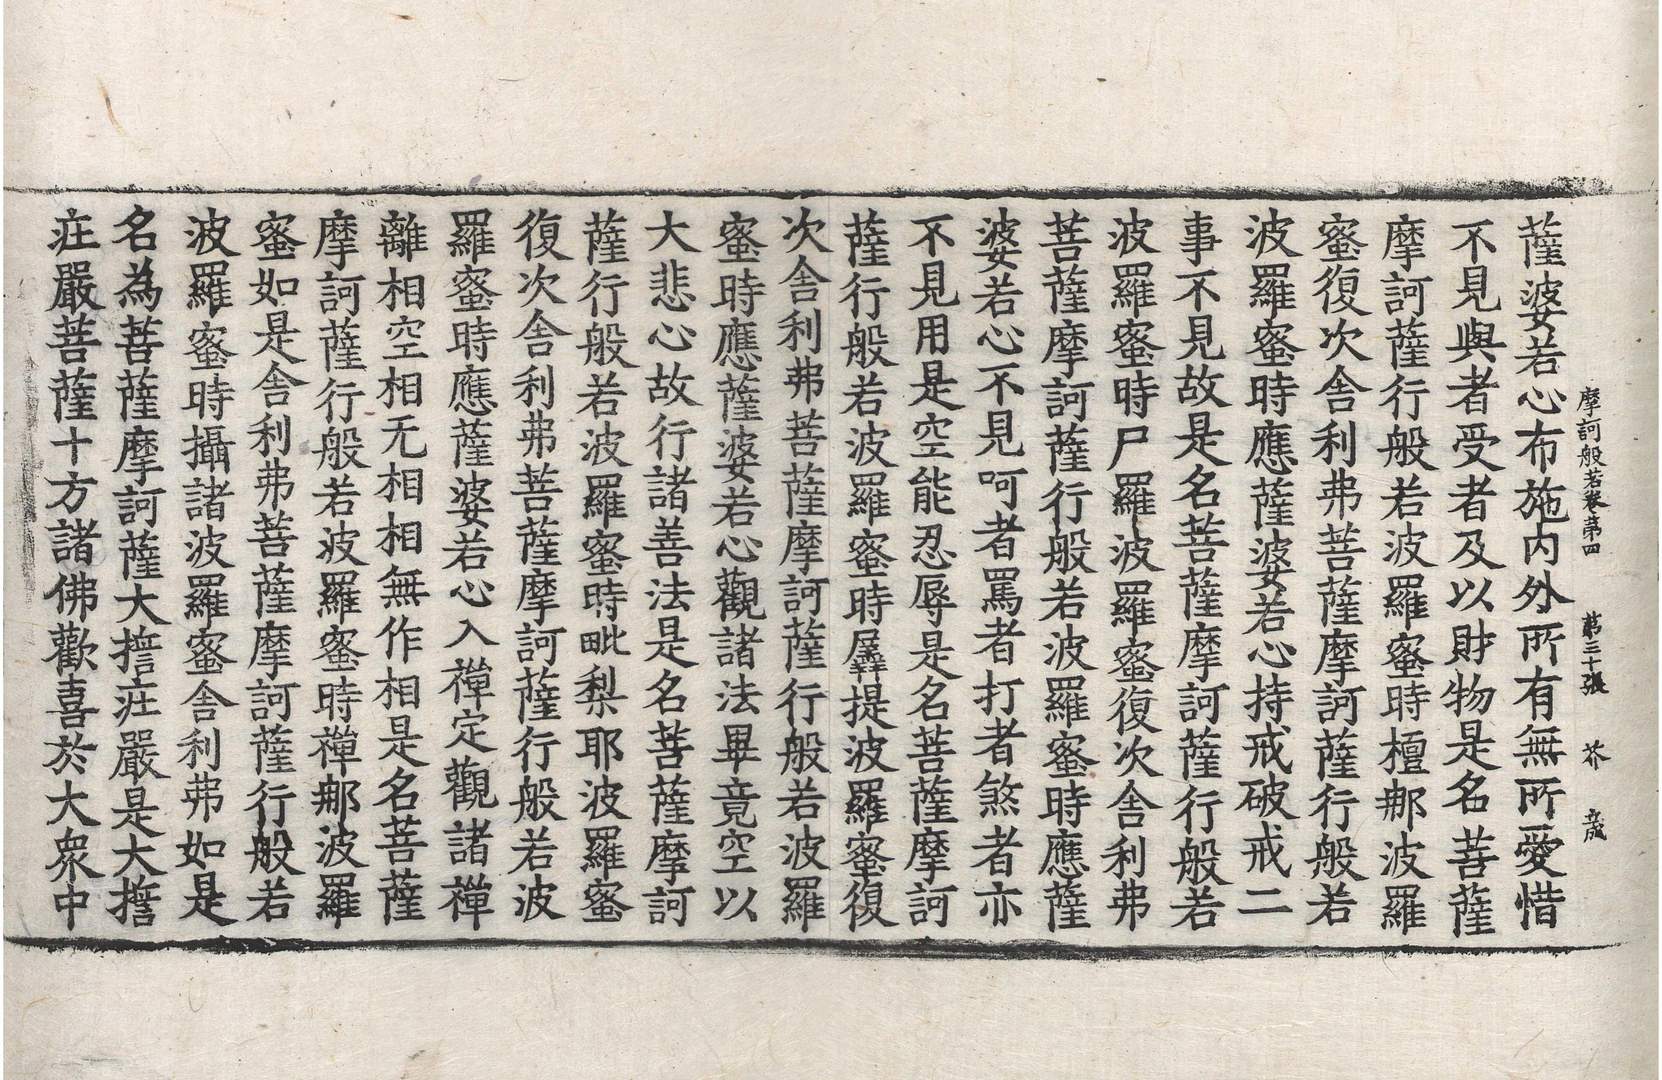 摩訶般若卷第四 第三十張 芥 立成
薩婆若心布施内外所有無所愛惜
不見與者受者及以財物是名菩薩
摩訶薩行般若波羅蜜時檀那波羅
蜜復次舍利弗菩薩摩訶薩行般若
波羅蜜時應薩婆若心持戒破戒二
事不見故是名菩薩摩訶薩行般若
波羅蜜時尸羅波羅蜜復次舍利弗
菩薩摩訶薩行般若波羅蜜時應薩
婆若心不見呵者罵者打者煞者亦
不見用是空能忍辱是名菩薩摩訶
薩行般若波羅蜜時羼提波羅蜜復
次舍利弗菩薩摩訶薩行般若波羅
蜜時應薩婆若心觀諸法畢竟空以
大悲心故行諸善法是名菩薩摩訶
薩行般若波羅蜜時毗梨耶波羅蜜
復次舍利弗菩薩摩訶薩行般若波
羅蜜時應薩婆若心入禪定觀諸禪
離相空相无相相無作相是名菩薩
摩訶薩行般若波羅蜜時禪那波羅
蜜如是舍利弗菩薩摩訶薩行般若
波羅蜜時攝諸波羅蜜舍利弗如是
名為菩薩摩訶薩大擔疘嚴是大擔
疘嚴菩薩十方諸佛歡喜於大眾中